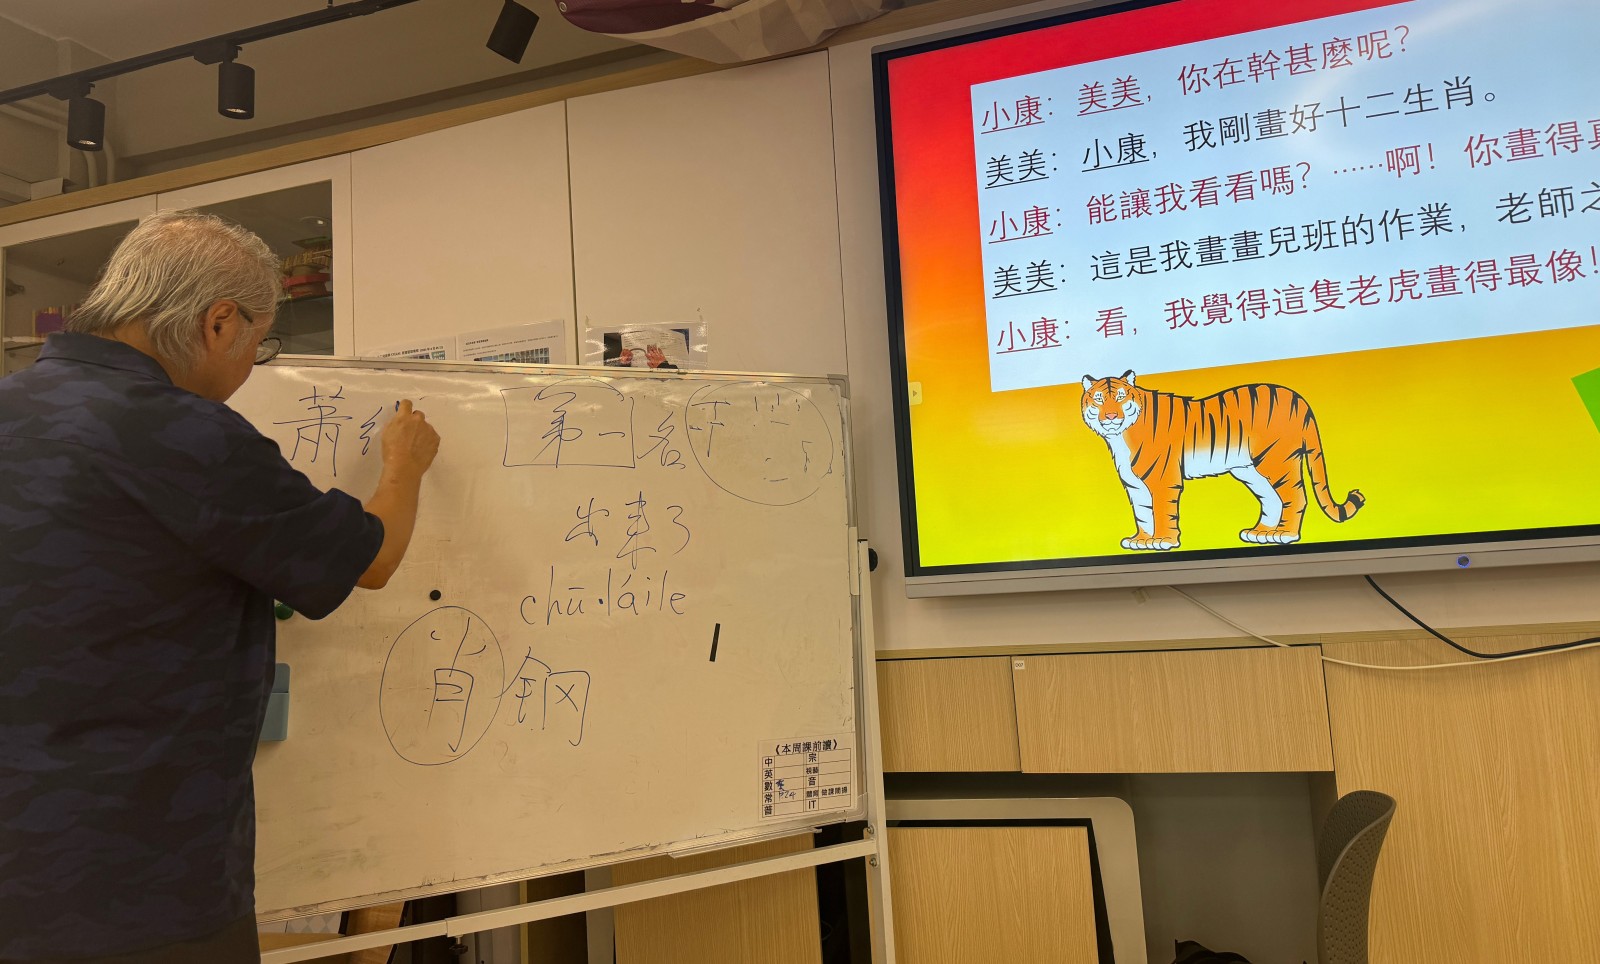 小康：美美，你在幹甚麼呢？
美美：小康，我剛畫好十二生肖。
小康：能讓我看看嗎？……啊！你畫得
美美：這是我畫畫兒班的作業，老師之
小康：看，我覺得這隻老虎畫得最像！
蕭
第一名
出来了
chū·láile
肖鋼
《本周課前讀》
中
英
數
常 P24
普
宗
視藝
音
體育
IT